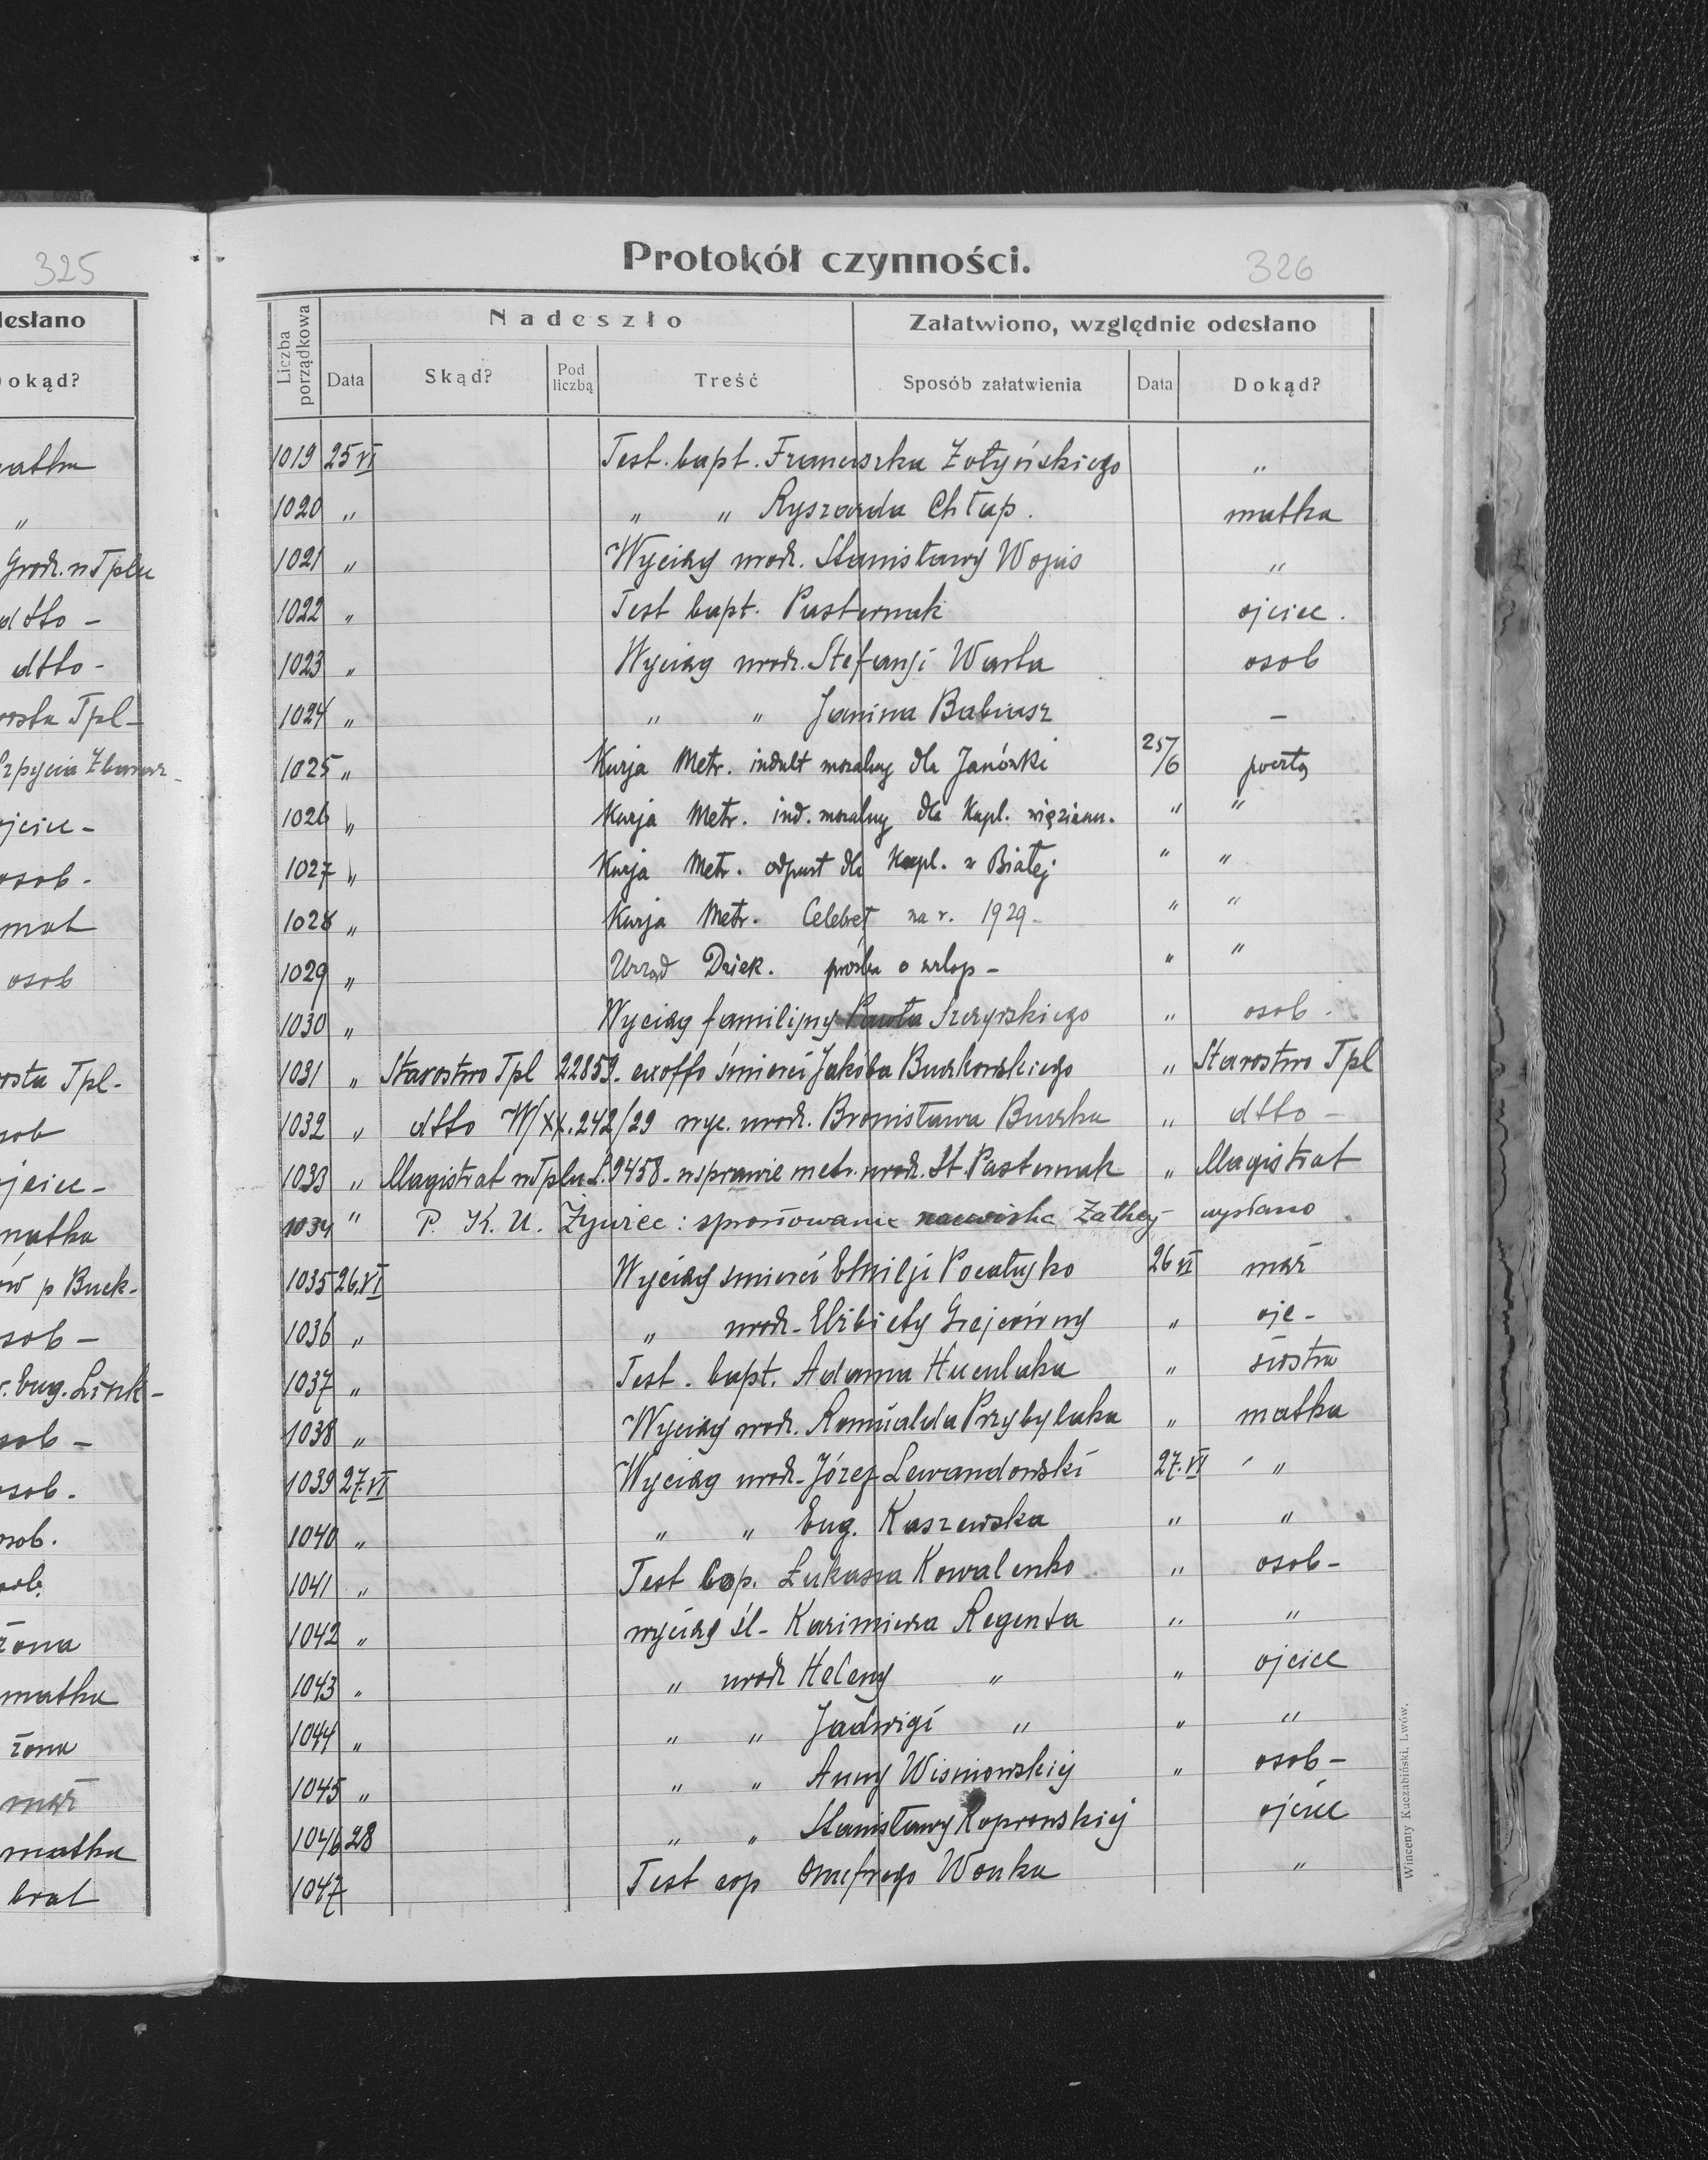 325
Protokół czynności.
326
desłano
Dokąd?
Liczba porządkowa
Nadeszło
Załatwiono, względnie odesłano
Data
Skąd?
Pod liczbą
Treść
Sposób załatwienia
Data
Dokąd?
matka
"
Grodz. w Tplu
dtto -
dtto -
Tpl -
ojciec -
osob -
osob
Tpl -
ojciec -
matka
p Buck -
osob -
Eug.
osob -
osob.
osob.
żona
matka
żona
mąż
matka
brat
1019 25 VI Test. bapt. Franciszka Żołyńskiego "
1020 " " " Ryszarda Chłap. matka
1021 " Wyciąg urodz. Stanisławy Wojas "
1022 " Test bapt. Pasternak ojciec.
1023 " Wyciąg urodz. Stefanji Warta osob
1024 " " " Janina Babiasz –
1025 " Kurja Metr. indult moralny dla Janówki 25/6 pocztą
1026 " Kurja Metr. ind. moralny dla Kapl. więzienn. " "
1027 " Kurja Metr. odpust dla Kapl. w Białej " "
1028 " Kurja Metr. Celebret na r. 1929 - " "
1029 " Urząd Dziek. prośba o urlop - " "
1030 " Wyciąg familijny " osob -
1031 " Starostwo Tpl 22859 - exoffo śmierci Jakóba Buczkowskiego " Starostwo Tpl
1032 " dtto W/XX. 242/29 wyc. urodz. Bronisława " dtto -
1033 " Magistrat w Tplu L. 9458 - w sprawie metr. urodz. St. Pasternak " Magistrat
1034 " P. K. U. Żywiec : sprostowanie nazwiska Zathey wysłano
1035 26.VI Wyciąg śmierci Emilji 26 VI mąż
1036 " " urodz - Elżbiety " ojc -
1037 " Test. bapt. Adama Huculaka " siostra
1038 " Wyciąg urodz. Romualda Przybylaka " matka
1039 27.VI Wyciąg urodz - Józef Lewandowski 27.VI "
1040 " " " Eug. Kaszewska " "
1041 " Test cop. Łukasza Kowalenko " osob -
1042 " wyciąg śl - Kazimierza Regenta " "
1043 " " urodz Heleny " " ojciec
1044 " " " Jadwigi " " "
1045 " " " Anny Wisniowskiej " osob -
1046 28 " " Stanisławy Koprowskiej ojciec
1047 Test cop Onufrego Wonka "
Wincenty Kuczabiński, Lwów.